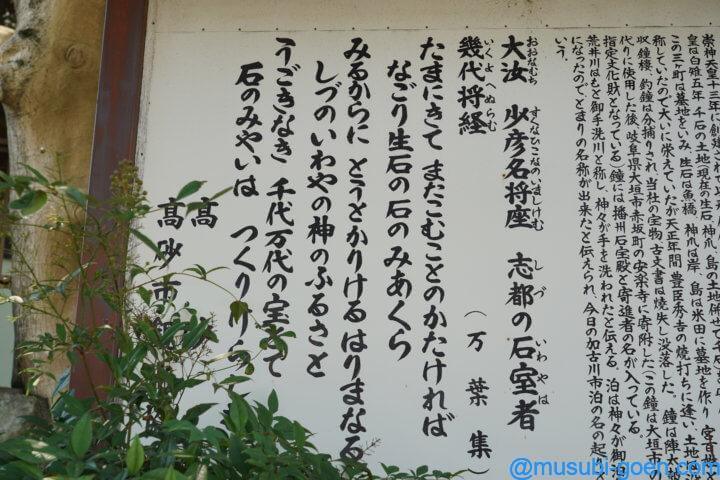 崇神天皇十三年に創建され
皇は白雉五年 千石の土地(現在の生石 神爪 島の土地
この三ヶ町は墓地をいみ 生石は魚橋、神爪は岸 島は米田に墓地を作り
称していたので大いに栄えていたが天正年間 豊臣秀吉の焼打ちに逢い、土地は
収、鐘楼、釣鐘は分捕りされ、当社の宝物 古文書は焼失し没落した。鐘は陣大鼓
代りに使用した後、岐阜県大垣市赤坂町の安楽寺に寄附した(この鐘は大垣市の
指定文化財となっている)鐘には播州石宝殿と寄進者の名が入っている。
荒井川はもと御手洗川と称し、神々が手を洗われたと伝える、泊は神々が御泊
になったのでとまりの名称が出来たと伝えられ、今日の加古川市泊の名の起
いう。
大汝 少彦名将座 志都の石室者
おおなむち すくなひこなのいましけむ しづ いわやは
幾代将経 (万葉集)
いくよへぬらむ
たまにきて またこむことのかたければ
なごり生石の石のみあくら
みるからに とうとかりける はりまなる
しづのいわやの神のふるさと
うごきなき 千代万代の宝とて
石のみやいは つくりけら
高
高砂市